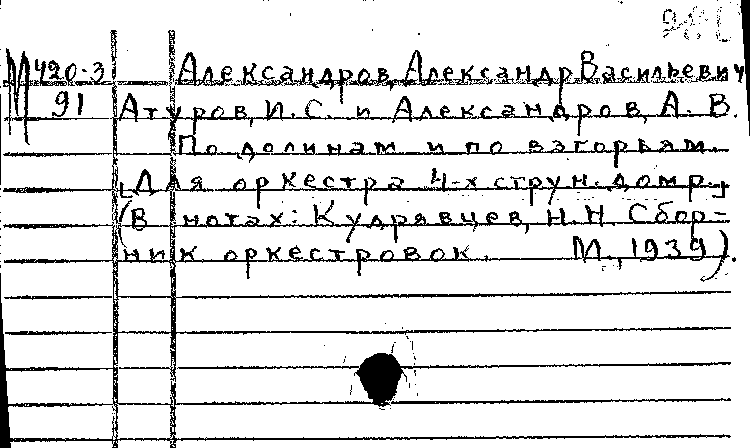 М 420-3 Александров, Александр Васильевич
91 Атуров, И. С. и Александров, А. В.
По долинам и по взгорьям.
[Для оркестра 4-х струн. домр.]
(В нотах: Кудрявцев, Н. Н. Сбор-
ник оркестровок. М., 1939).